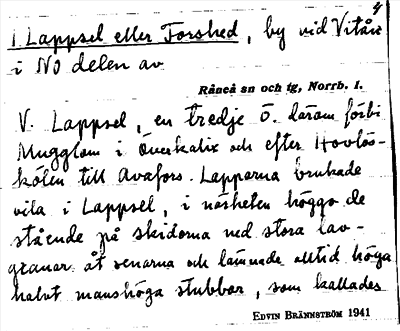 1 Lappsel eller Forshed, by vid Vitån 4
i NO delen av
Råneå sn och tg, Norrb. l.
V. Lappsel, en tredje ö. därom förbi
Mugglom i Överkalix och efter Hovlös-
kölen till Avafors. Lapparna brukade
vila i Lappsel, i närheten höggo de
stående på skidorna ned stora lav-
granar åt renarna och lämnade alltid höga
halvt manshöga stubbar, som kallades
EDVIN BRÄNNSTRÖM 1941